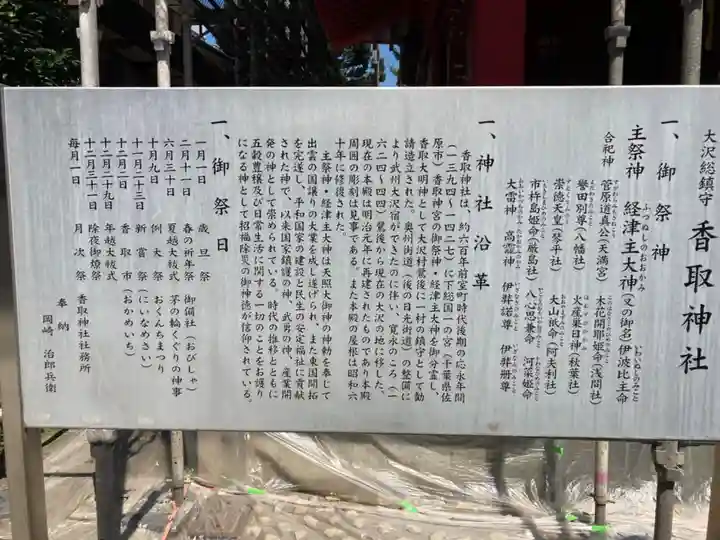 大沢総鎮守 香取神社
一、御祭神
主祭神 経津主大神(又の御名)伊波比主命
ふつぬしのおおかみ
いわいぬしのみこと
合祀神 菅原道真公(天満宮) 木花開耶姫命(浅間社)
誉田別尊(八幡社) 火産巣日神(秋葉社)
崇徳天皇(琴平社) 大山祇命(阿夫利社)
市杵島姫命(厳島社) 八心思兼命 河菜姫命
大雷神 高龗神 伊弉諾尊 伊弉册尊
一、神社沿革
香取神社は、約六百年前室町時代後期の応永年間
(一三九四~一四二七)に下総国一の宮(千葉県佐
原市)香取神宮の御祭神・経津主大神を御分霊し、
香取大明神として大沢村鷺後に一村の鎮守として勧
請造立された。奥州街道(後の日光街道)の整備に
より武州大沢宿ができたのに伴い、寛永のころ(一
六二四~四四)鷺後から現在の大沢の地に移した。
現在の本殿は明治元年に再建されたものであり本殿
周囲の彫刻は見事である。また本殿の屋根は昭和六
十年に修復された。
主祭神・経津主大神は天照大御神の神勅を奉じて
出雲の国譲りの大業を成し遂げられ、また東国開拓
を完遂し、平和国家の建設と民生の安定福祉に貢献
された神で、以来国家鎮護の神、武勇の神、産業開
発の神として崇められている。時代の推移とともに
五穀豊穣及び日常生活に関する一切のことをお護り
になる神として招福除災の御神徳が信仰されている。
一、御祭日
一月一日 歳旦祭
二月十一日 春の祈年祭 御備社(おびしゃ)
六月三十日 夏越大祓式 茅の輪くぐりの神事
十月九日 例大祭 おくんちまつり
十一月二十三日 新嘗祭(にいなめさい)
十二月二日 香取市(おかめいち)
十二月二十九日 年越大祓式
十二月三十一日 除夜御燎祭
毎月一日 月次祭 香取神社社務所
奉納
岡崎 治郎兵衛